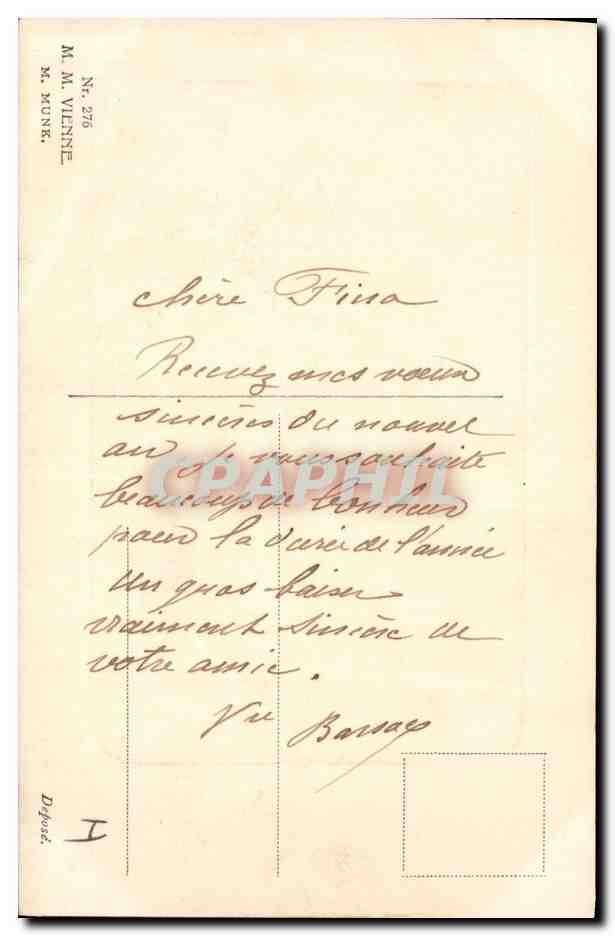 Nr. 276
M. M. VIENNE
M. MUNK.
chère Fina
Recevez mes vœux
sincères du nouvel
an je vous souhaite
beaucoup de bonheur
pour la durée de l'année
un gros baiser
vraiment sincère de
votre amie.
Vve Barsacq
CPAPHIL
Déposé.
I